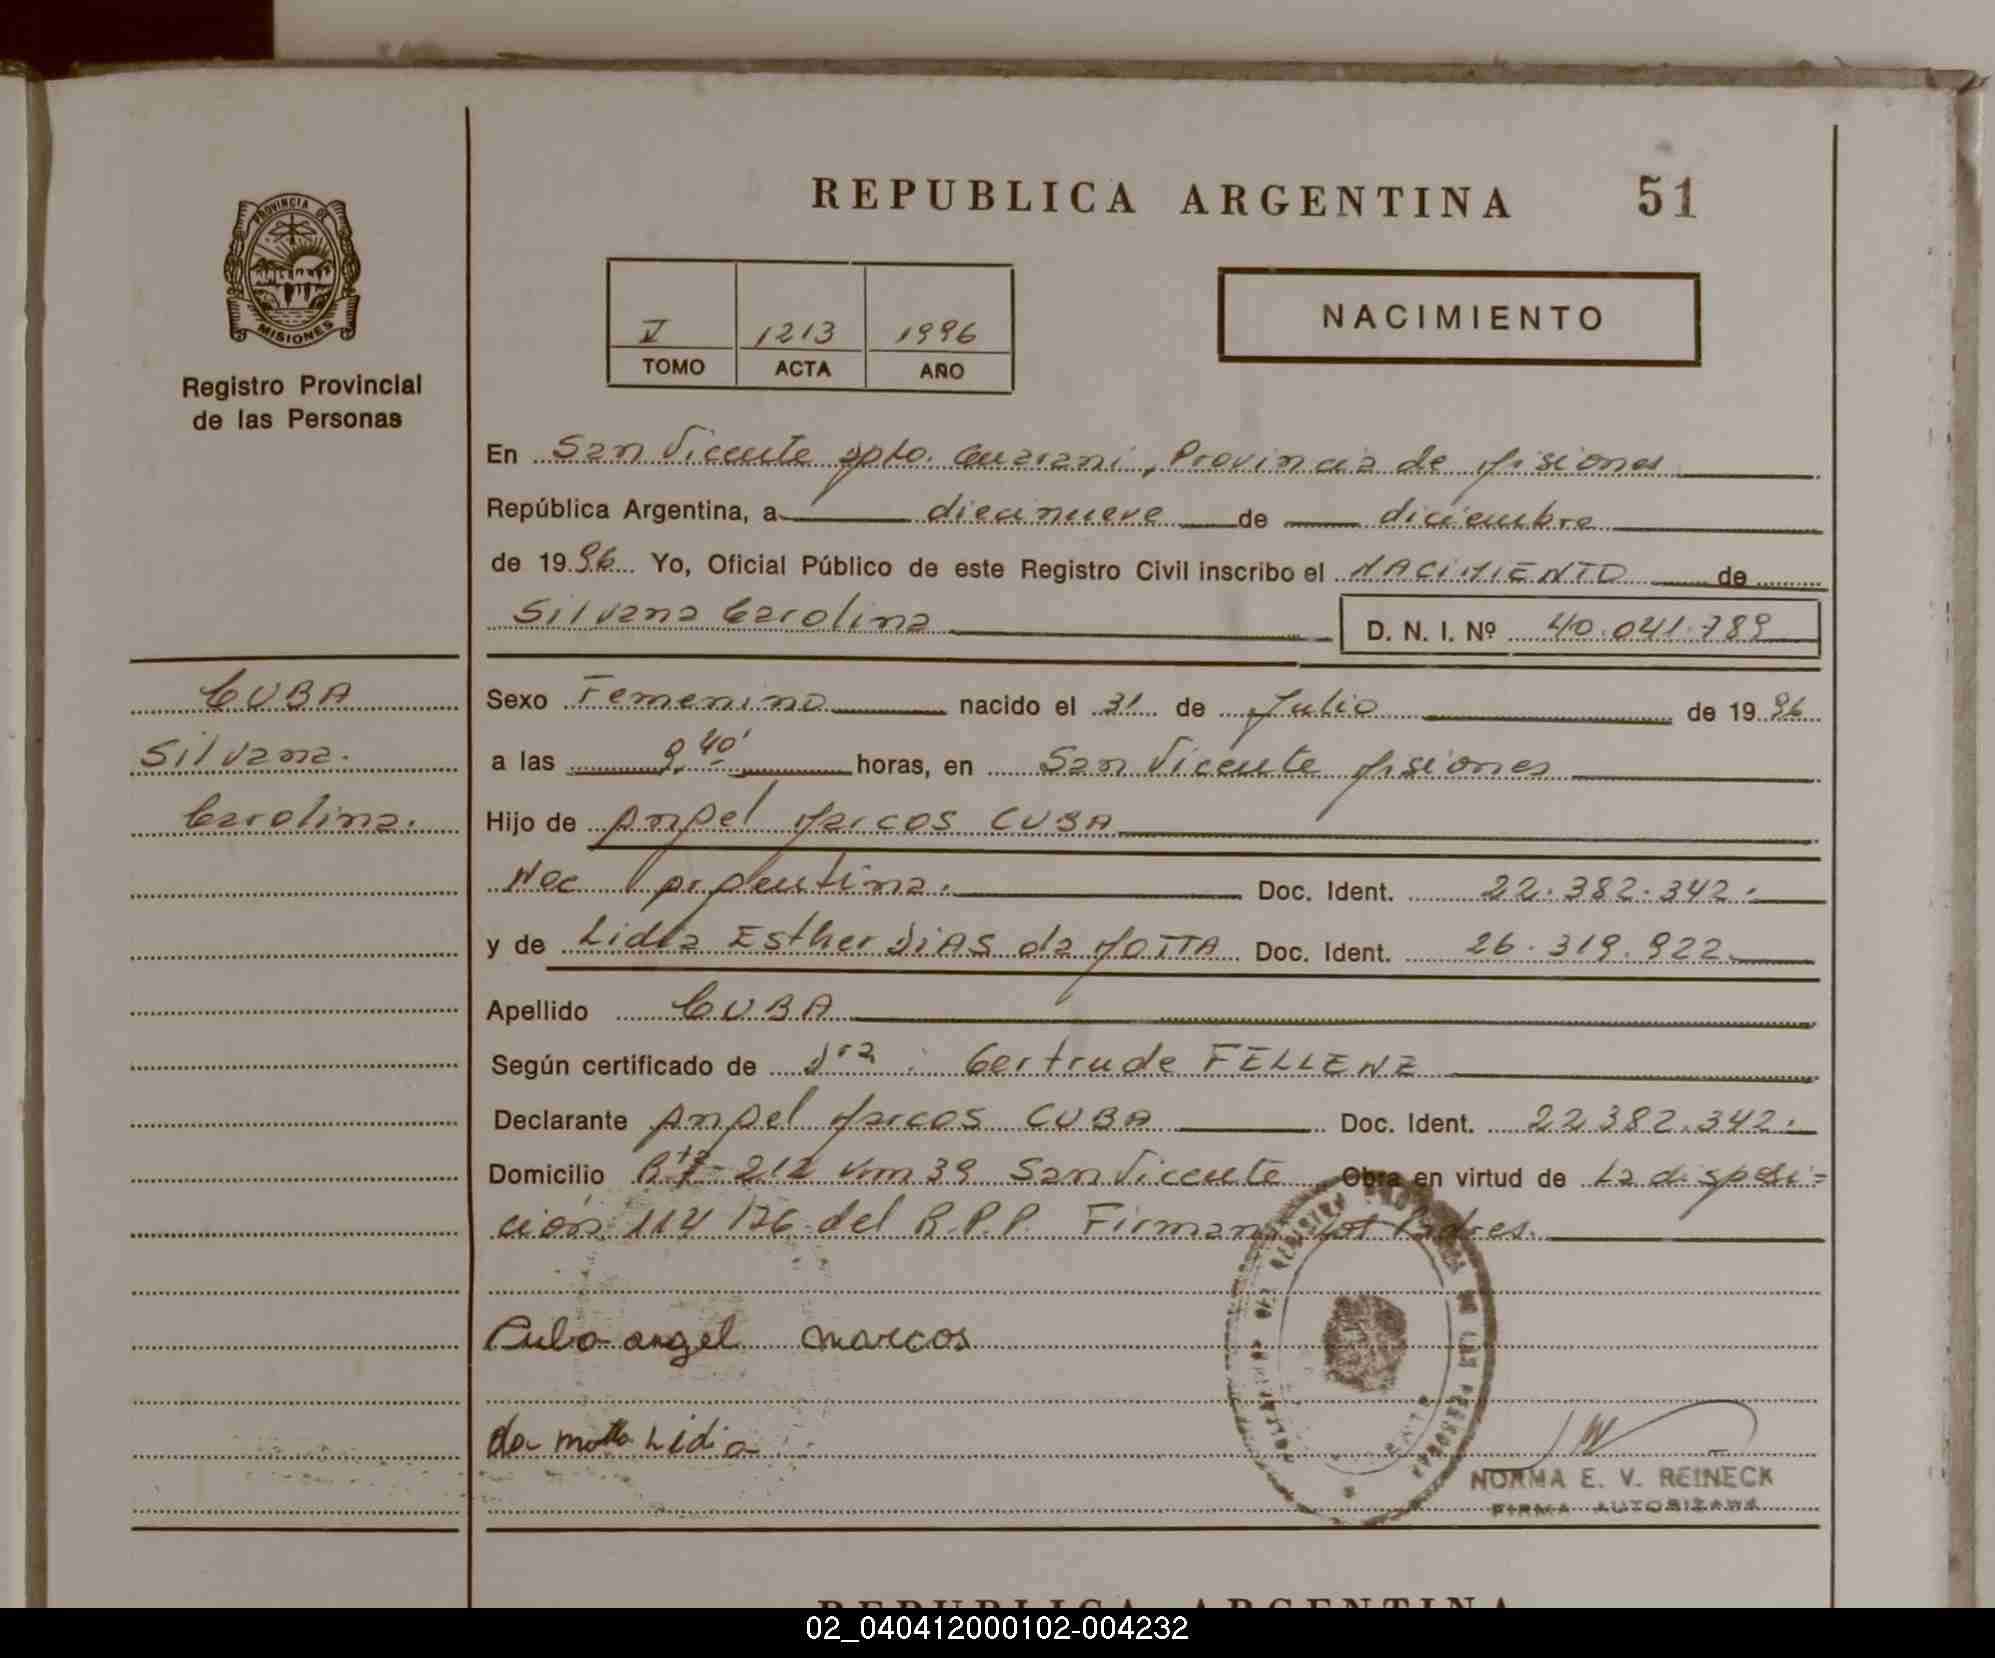 REPUBLICA ARGENTINA 51
PROVINCIA DE
MISIONES
Registro Provincial
de las Personas
V 1213 1996
TOMO ACTA AÑO
NACIMIENTO
En San Vicente Dpto. Guarani, Provincia de Misiones
República Argentina, a diecinueve de diciembre
de 1996 Yo, Oficial Público de este Registro Civil inscribo el NACIMIENTO de
Silvana Carolina D. N. I. Nº 40.041.789
CUBA
Silvana.
Carolina.
Sexo Femenino nacido el 31 de Julio de 1996
a las 9,40' horas, en San Vicente Misiones
Hijo de Angel Marcos CUBA
Nac Argentina. Doc. Ident. 22.382.342.
y de Lidia Esther DIAS da MOTTA Doc. Ident. 26.319.922.
Apellido CUBA
Según certificado de Dra. Gertrude FELLENZ
Declarante Angel Marcos CUBA Doc. Ident. 22.382.342.
Domicilio 212 Km 39 San Vicente Obra en virtud de La disposi=
ción 114/96 del R.P.P. Firman los Padres.
Cuba angel marcos
da motta Lidia
NORMA E. V. REINECK
FIRMA AUTORIZADA
REPUBLICA ARGENTINA
02_040412000102-004232